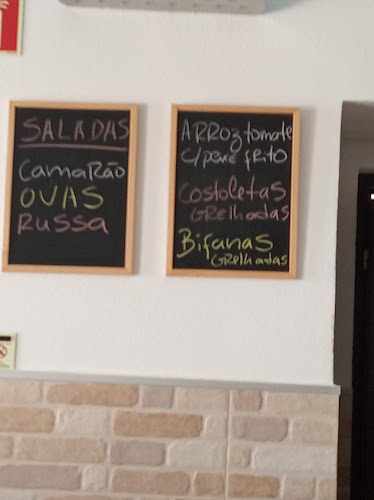 SALADAS
CAMARÃO
OVAS
RUSSA
ARROZ tomate
c/peixe frito
Costoletas
GRelhadas
Bifanas
GRelhadas